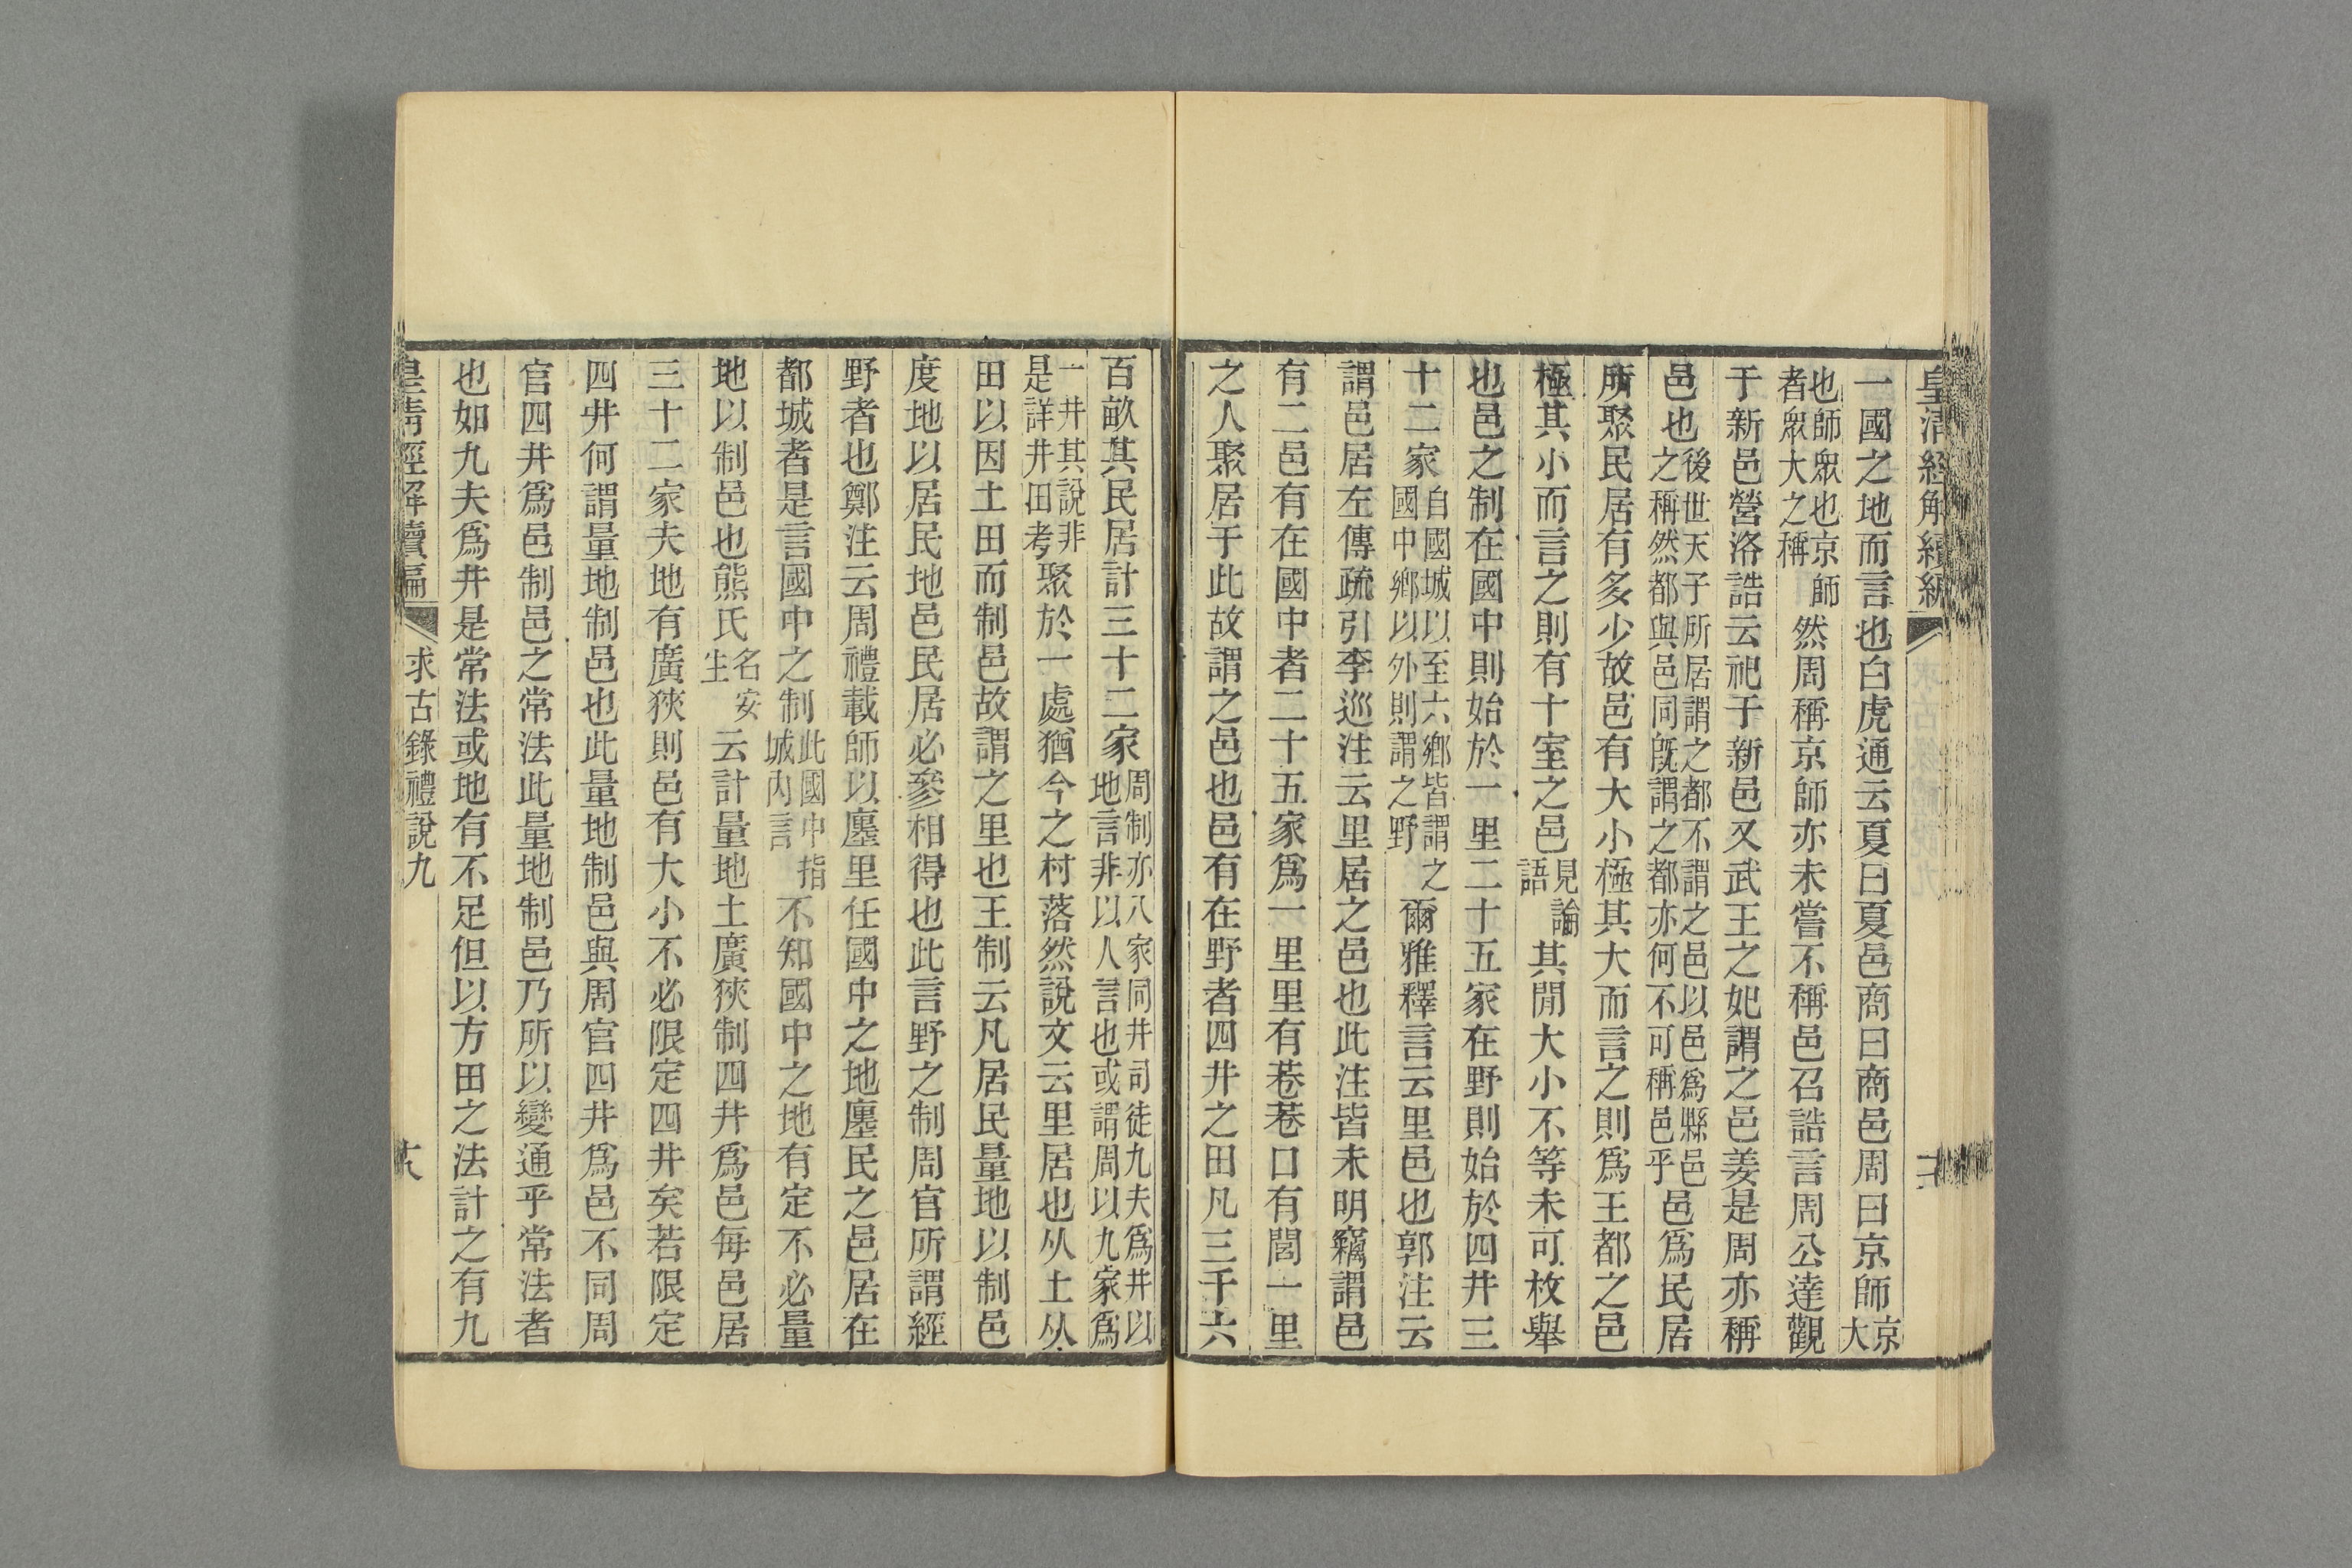 皇清經解續編
一國之地而言也白虎通云夏曰夏邑商曰商邑周曰京師京大
也師眾也京師者眾大之稱然周稱京師亦未嘗不稱邑召誥言周公達觀
于新邑營洛誥云祀于新邑又武王之妃謂之邑姜是周亦稱
邑也後世天子所居謂之都不謂之邑以邑爲縣邑之稱然都與邑同旣謂之都亦何不可稱邑乎邑爲民居
所聚民居有多少故邑有大小極其大而言之則爲王都之邑
極其小而言之則有十室之邑見論語其閒大小不等未可枚舉
也邑之制在國中則始於一里二十五家在野則始於四井三
十二家自國城以至六鄉皆謂之國中鄉以外則謂之野爾雅釋言云里邑也郭注云
謂邑居左傳疏引李巡注云里居之邑也此注皆未明竊謂邑
有二邑有在國中者二十五家爲一里里有巷巷口有閭一里
之人聚居于此故謂之邑也邑有在野者四井之田凡三千六
百畝其民居計三十二家周制亦八家同井司徒九夫爲井以地言非以人言也或謂周以九家爲
一井其說非是詳井田考聚於一處猶今之村落然說文云里居也从土从
田以因土田而制邑故謂之里也王制云凡居民量地以制邑
度地以居民地邑民居必參相得也此言野之制周官所謂經
野者也鄭注云周禮載師以廛里任國中之地廛民之邑居在
都城者是言國中之制此國中指城內言不知國中之地有定不必量
地以制邑也熊氏名安生云計量地土廣狹制四井爲邑每邑居
三十二家夫地有廣狹則邑有大小不必限定四井矣若限定
四井何謂量地制邑也此量地制邑與周官四井爲邑不同周
官四井爲邑制邑之常法此量地制邑乃所以變通乎常法者
也如九夫爲井是常法或地有不足但以方田之法計之有九
皇清經解續編 求古錄禮說九 六